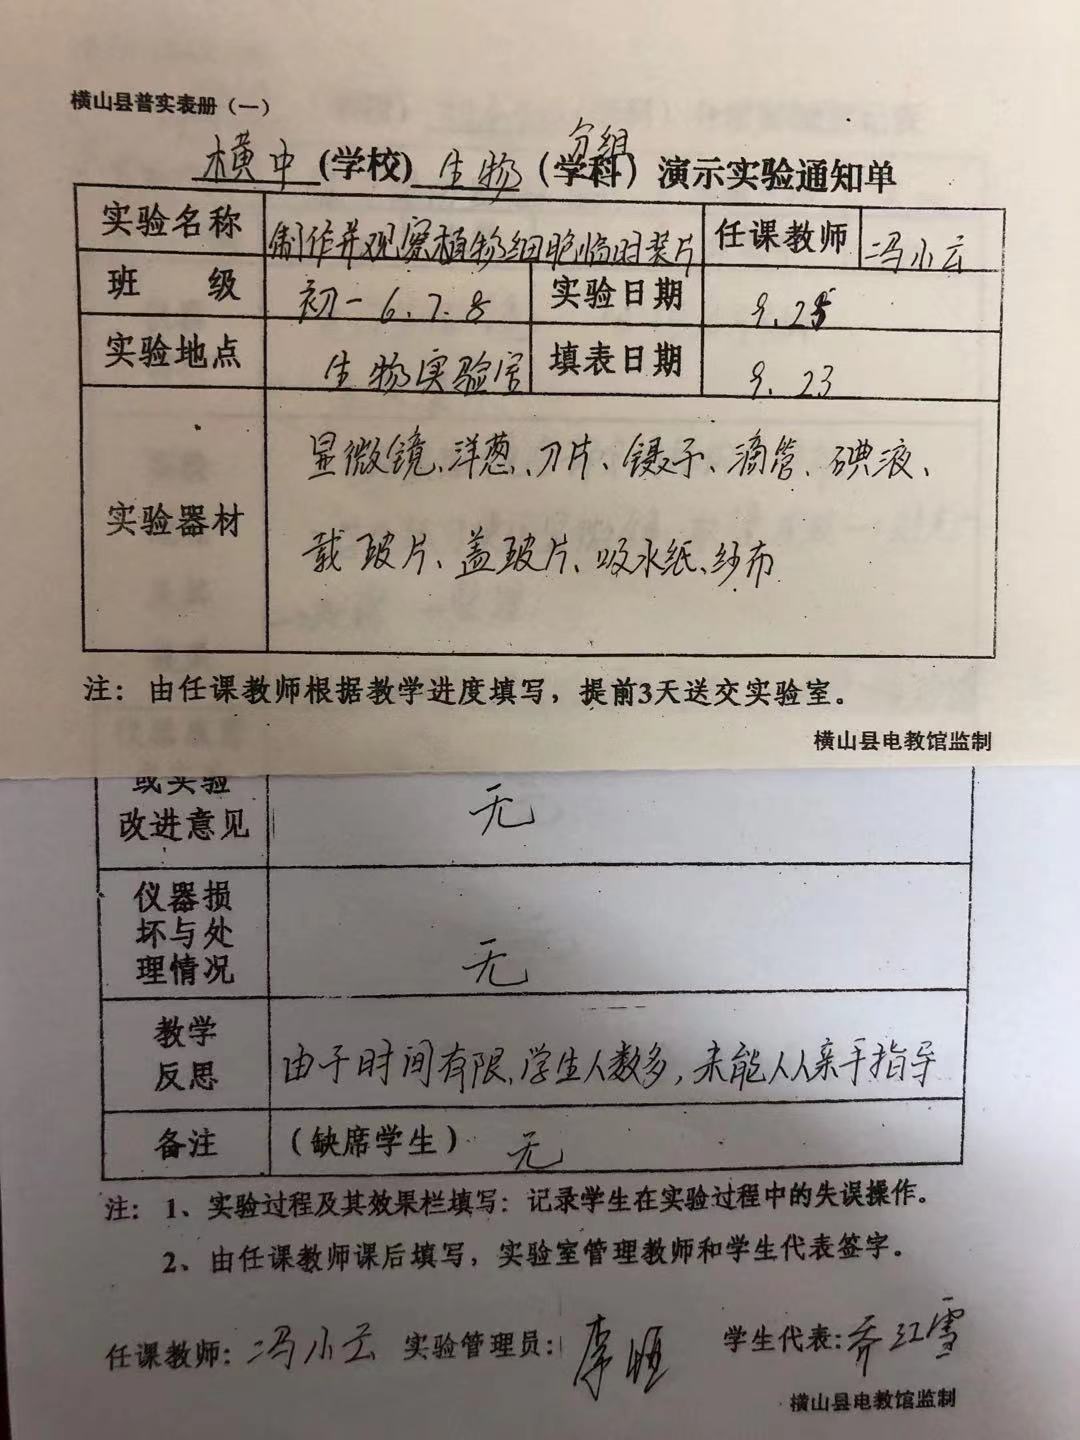 横山县普实表册（一）
分组
横中（学校）生物（学科）演示实验通知单
实验名称 制作并观察植物细胞临时装片 任课教师 冯小云
班 级 初一6、7、8 实验日期 9.25
实验地点 生物实验室 填表日期 9.23
实验器材
显微镜、洋葱、刀片、镊子、滴管、碘液、
载玻片、盖玻片、吸水纸、纱布
注：由任课教师根据教学进度填写，提前3天送交实验室。
横山县电教馆监制
或实验
改进意见
无
仪器损
坏与处
理情况
无
教学
反思
由于时间有限、学生人数多，未能人人亲手指导
备注 （缺席学生） 无
注：1、实验过程及其效果栏填写：记录学生在实验过程中的失误操作。
2、由任课教师课后填写，实验室管理教师和学生代表签字。
任课教师：冯小云 实验管理员：李恒 学生代表：乔江雪
横山县电教馆监制